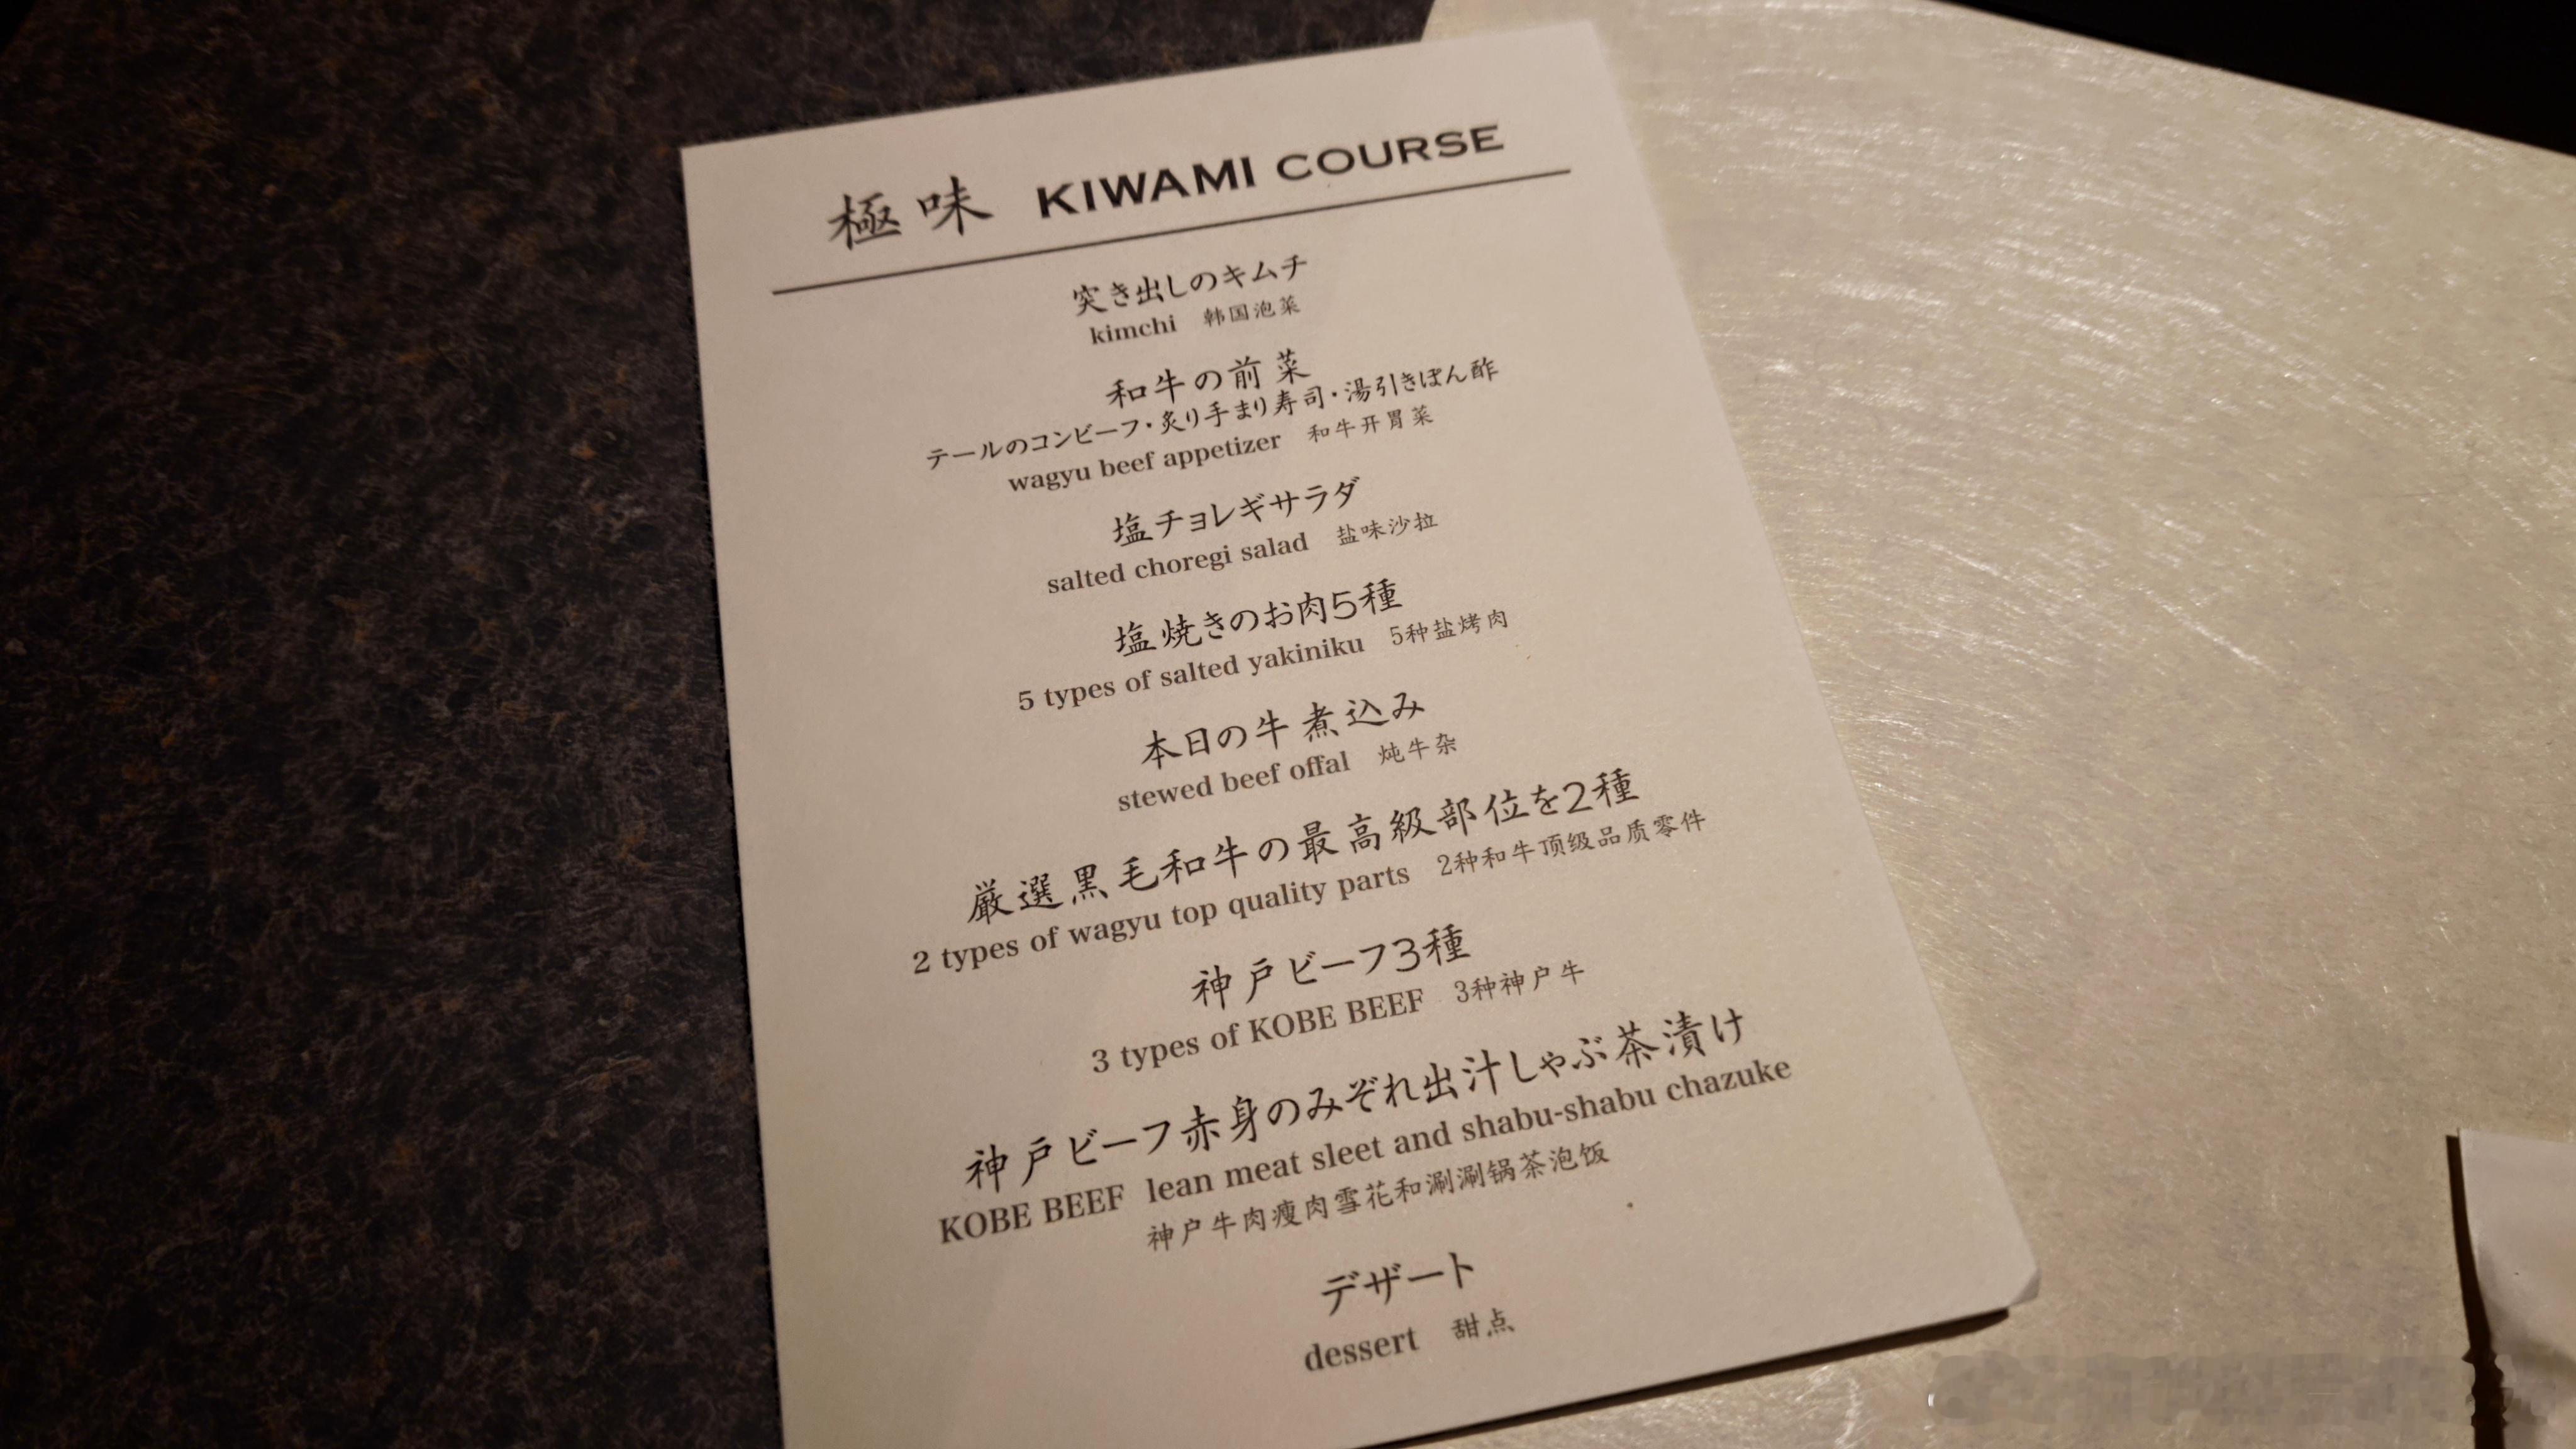 極味 KIWAMI COURSE
突き出しのキムチ
kimchi 韩国泡菜
和牛の前菜
テールのコンビーフ・炙り手まり寿司・湯引きぽん酢
wagyu beef appetizer 和牛开胃菜
塩チョレギサラダ
salted choregi salad 盐味沙拉
塩焼きのお肉5種
5 types of salted yakiniku 5种盐烤肉
本日の牛煮込み
stewed beef offal 炖牛杂
厳選黒毛和牛の最高級部位を2種
2 types of wagyu top quality parts 2种和牛顶级品质零件
神戸ビーフ3種
3 types of KOBE BEEF 3种神户牛
神戸ビーフ赤身のみぞれ出汁しゃぶ茶漬け
KOBE BEEF lean meat sleet and shabu-shabu chazuke
神户牛肉瘦肉雪花和涮涮锅茶泡饭
デザート
dessert 甜点